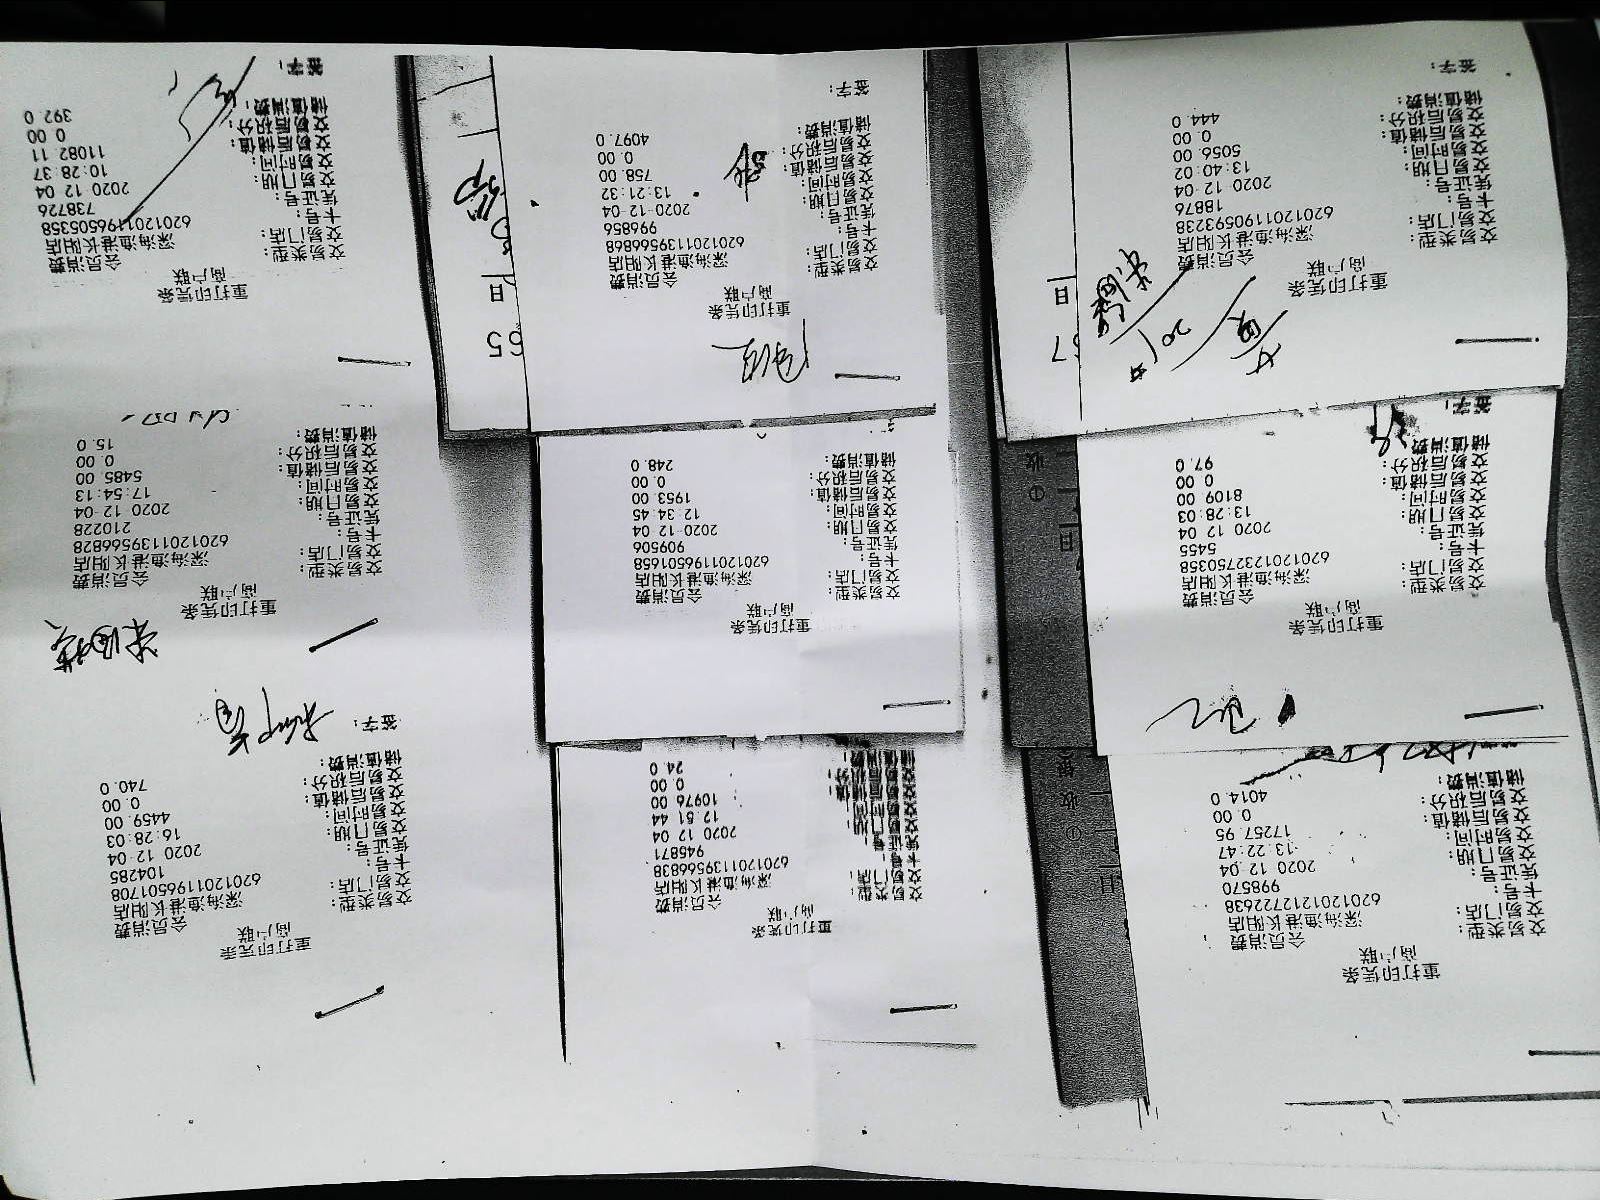 重打印凭条
商户联
交易类型: 会员消费
交易门店: 深海渔港长阳店
卡号: 6201201217722638
凭证号: 998570
交易日期: 2020-12-04
交易时间: 13:22:47
交易后储值: 17257.95
交易后积分: 0.00
储值消费: 4014.0
重打印凭条
商户联
交易类型: 会员消费
交易门店: 深海渔港长阳店
卡号: 6201201139566838
凭证号: 945871
交易日期: 2020-12-04
交易时间: 12:51:44
交易后储值: 10976.00
交易后积分: 0.00
储值消费: 24.0
重打印凭条
商户联
交易类型: 会员消费
交易门店: 深海渔港长阳店
卡号: 6201201196501708
凭证号: 104285
交易日期: 2020-12-04
交易时间: 16:28:03
交易后储值: 4459.00
交易后积分: 0.00
储值消费: 740.0
签字:
重打印凭条
商户联
交易类型: 会员消费
交易门店: 深海渔港长阳店
卡号: 6201201232750358
凭证号: 5455
交易日期: 2020-12-04
交易时间: 13:28:03
交易后储值: 8109.00
交易后积分: 0.00
储值消费: 97.0
签字:
重打印凭条
商户联
交易类型: 会员消费
交易门店: 深海渔港长阳店
卡号: 6201201196501658
凭证号: 909506
交易日期: 2020-12-04
交易时间: 12:34:45
交易后储值: 1953.00
交易后积分: 0.00
储值消费: 248.0
重打印凭条
商户联
交易类型: 会员消费
交易门店: 深海渔港长阳店
卡号: 6201201139566828
凭证号: 210228
交易日期: 2020-12-04
交易时间: 17:54:13
交易后储值: 5485.00
交易后积分: 0.00
储值消费: 15.0
重打印凭条
商户联
交易类型: 会员消费
交易门店: 深海渔港长阳店
卡号: 6201201190593238
凭证号: 18876
交易日期: 2020-12-04
交易时间: 13:40:02
交易后储值: 5056.00
交易后积分: 0.00
储值消费: 444.0
签字:
重打印凭条
商户联
交易类型: 会员消费
交易门店: 深海渔港长阳店
卡号: 6201201139566868
凭证号: 996856
交易日期: 2020-12-04
交易时间: 13:21:32
交易后储值: 758.00
交易后积分: 0.00
储值消费: 4097.0
签字:
重打印凭条
商户联
交易类型: 会员消费
交易门店: 深海渔港长阳店
卡号: 6201201196505358
凭证号: 738726
交易日期: 2020-12-04
交易时间: 10:28:37
交易后储值: 11082.11
交易后积分: 0.00
储值消费: 392.0
签字: